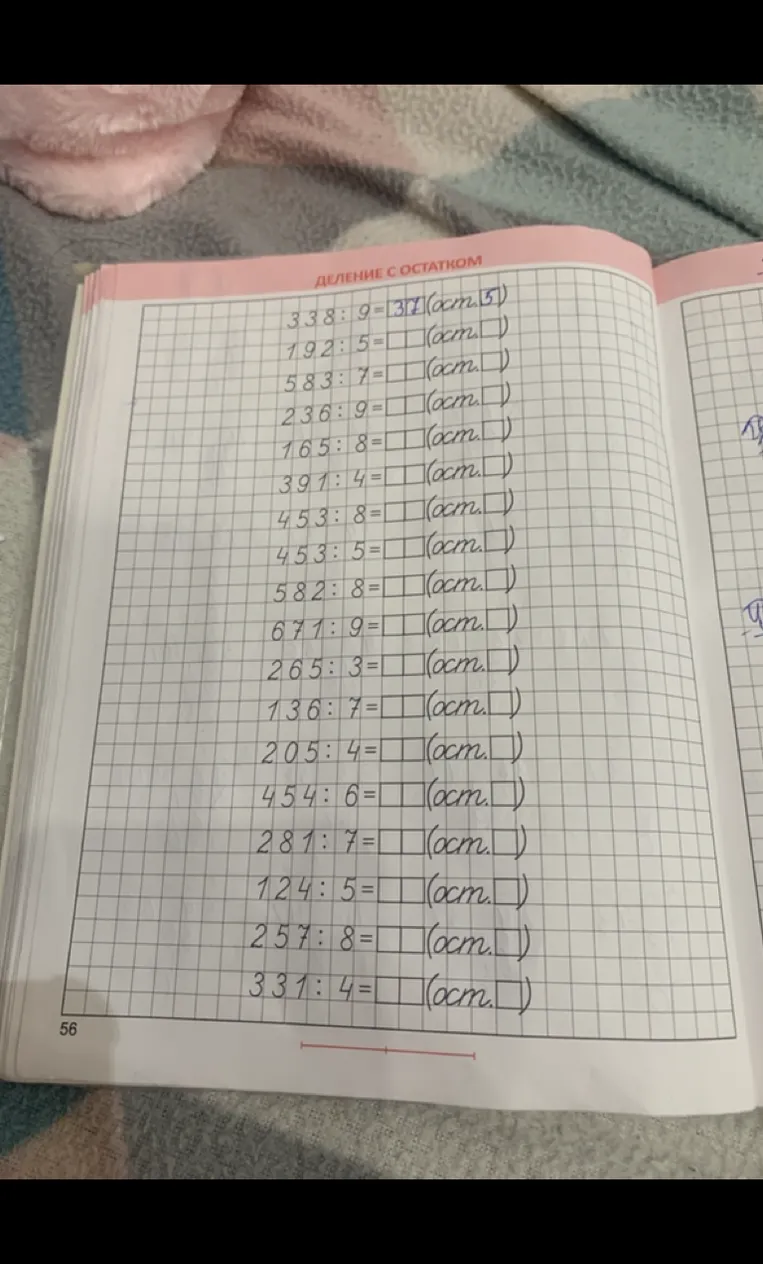 ДЕЛЕНИЕ С ОСТАТКОМ
338 : 9 = 37 (ост. 5)
192 : 5 = (ост. )
583 : 7 = (ост. )
236 : 9 = (ост. )
165 : 8 = (ост. )
391 : 4 = (ост. )
453 : 8 = (ост. )
453 : 5 = (ост. )
582 : 8 = (ост. )
671 : 9 = (ост. )
265 : 3 = (ост. )
136 : 7 = (ост. )
205 : 4 = (ост. )
454 : 6 = (ост. )
281 : 7 = (ост. )
124 : 5 = (ост. )
257 : 8 = (ост. )
331 : 4 = (ост. )
56